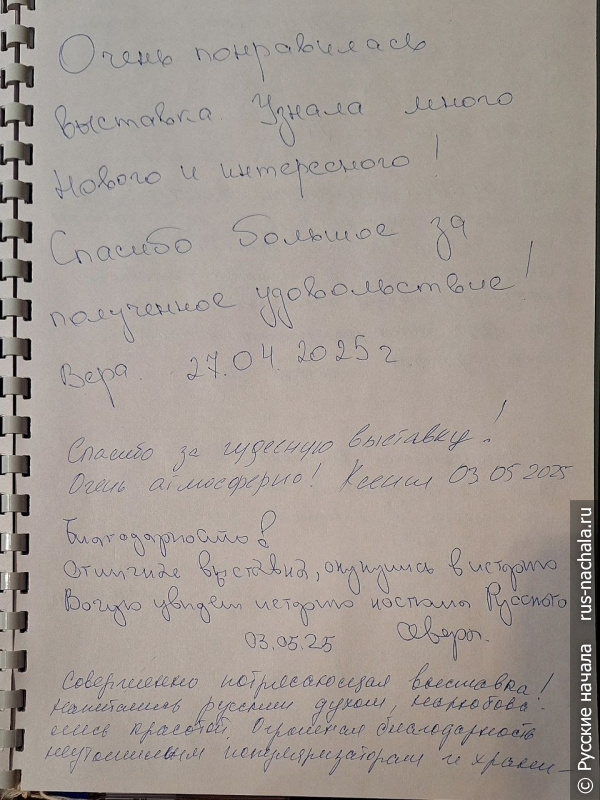 Очень понравилась
выставка. Узнала много
нового и интересного!
Спасибо большое за
полученное удовольствие!
Вера. 27.04.2025 г.
Спасибо за чудесную выставку!
Очень атмосферно! Ксения 03 05 2025
Благодарность!
Отличная выставка, окунулись в историю
увидели историю костюма Русского
03.05.25 Севера.
Совершенно потрясающая выставка!
Напитались русским духом, налюбова-
лись красотой. Огромная благодарность
неутомимым популяризаторам и храни-
© Русские начала rus-nachala.ru